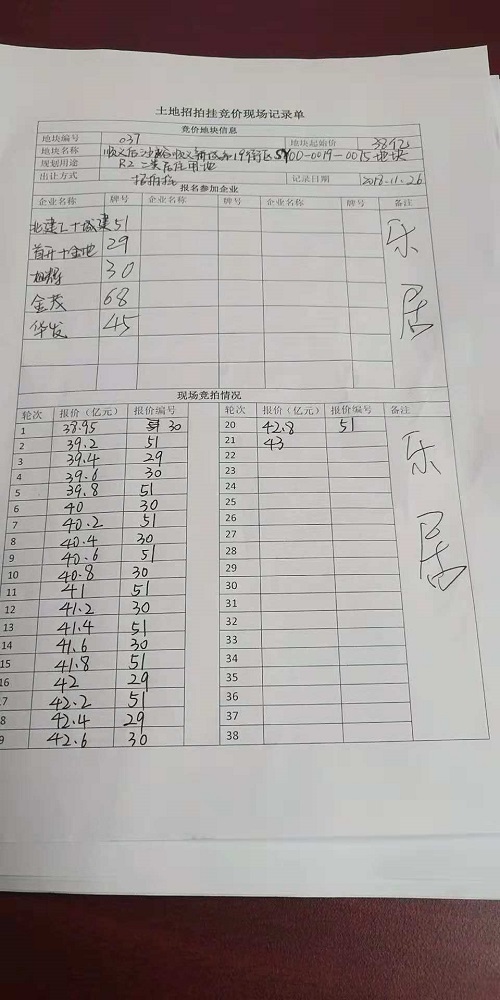 土地招拍挂竞价现场记录单
竞价地块信息
地块编号 037 地块起始价 38亿
地块名称 顺义后沙峪顺义新城第19街区SY00-0019-0015地块
规划用途 R2二类居住用地
出让方式 招拍挂 记录日期 2018.11.26
报名参加企业
企业名称 牌号 企业名称 牌号 企业名称 牌号 备注
北建工+城建 51
首开+金地 29
30
金茂 68
华发 45
乐居
现场竞拍情况
轮次 报价（亿元） 报价编号 轮次 报价（亿元） 报价编号 备注
1 38.95 30 20 42.8 51
2 39.2 51 21 43
3 39.4 29 22
4 39.6 30 23
5 39.8 51 24
6 40 30 25
7 40.2 51 26
8 40.4 30 27
9 40.6 51 28
10 40.8 30 29
11 41 51 30
12 41.2 30 31
13 41.4 51 32
14 41.6 30 33
15 41.8 51 34
16 42 29 35
7 42.2 51 36
8 42.4 29 37
9 42.6 30 38
乐居